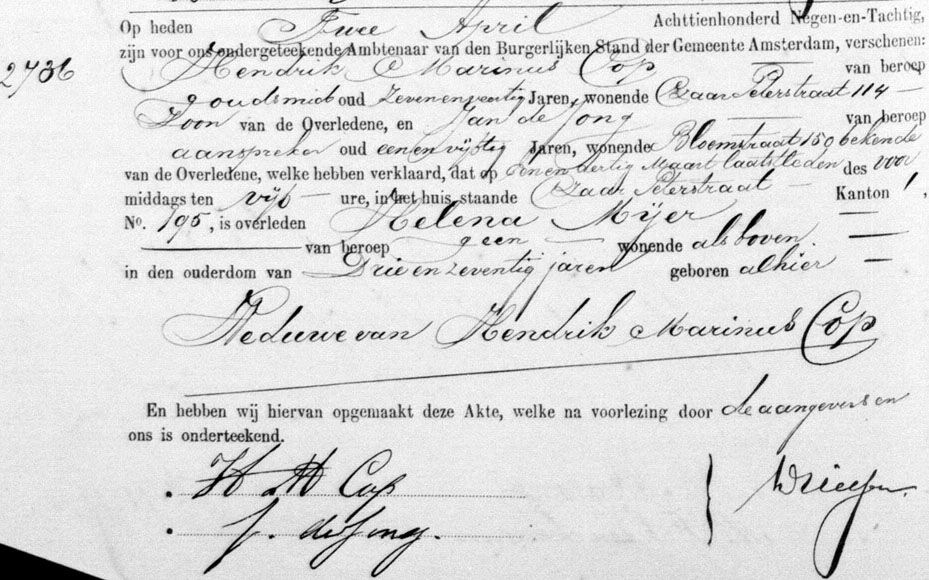 Op heden Twee April Achttienhonderd Negen-en-Tachtig,
zijn voor ons ondergeteekende Ambtenaar van den Burgerlijken Stand der Gemeente Amsterdam, verschenen:
2736 Hendrik Marinus Cop van beroep
goudsmid oud Jaren, wonende Czaar Peterstraat 114
Zoon van de Overledene, en Jan de Jong van beroep
aanspreker oud een en vijftig Jaren, wonende Bloemstraat 150 bekende
van de Overledene, welke hebben verklaard, dat op een en dertig Maart laatstleden des voor
middags ten vijf ure, in het huis, staande Czaar Peterstraat Kanton 1,
No. 195, is overleden Helena Mijer
van beroep geen wonende als boven.
in den ouderdom van Drie en zeventig jaren geboren alhier
Weduwe van Hendrik Marinus Cop
En hebben wij hiervan opgemaakt deze Akte, welke na voorlezing door de aangevers en
ons is onderteekend.
H M Cop
J. de Jong.